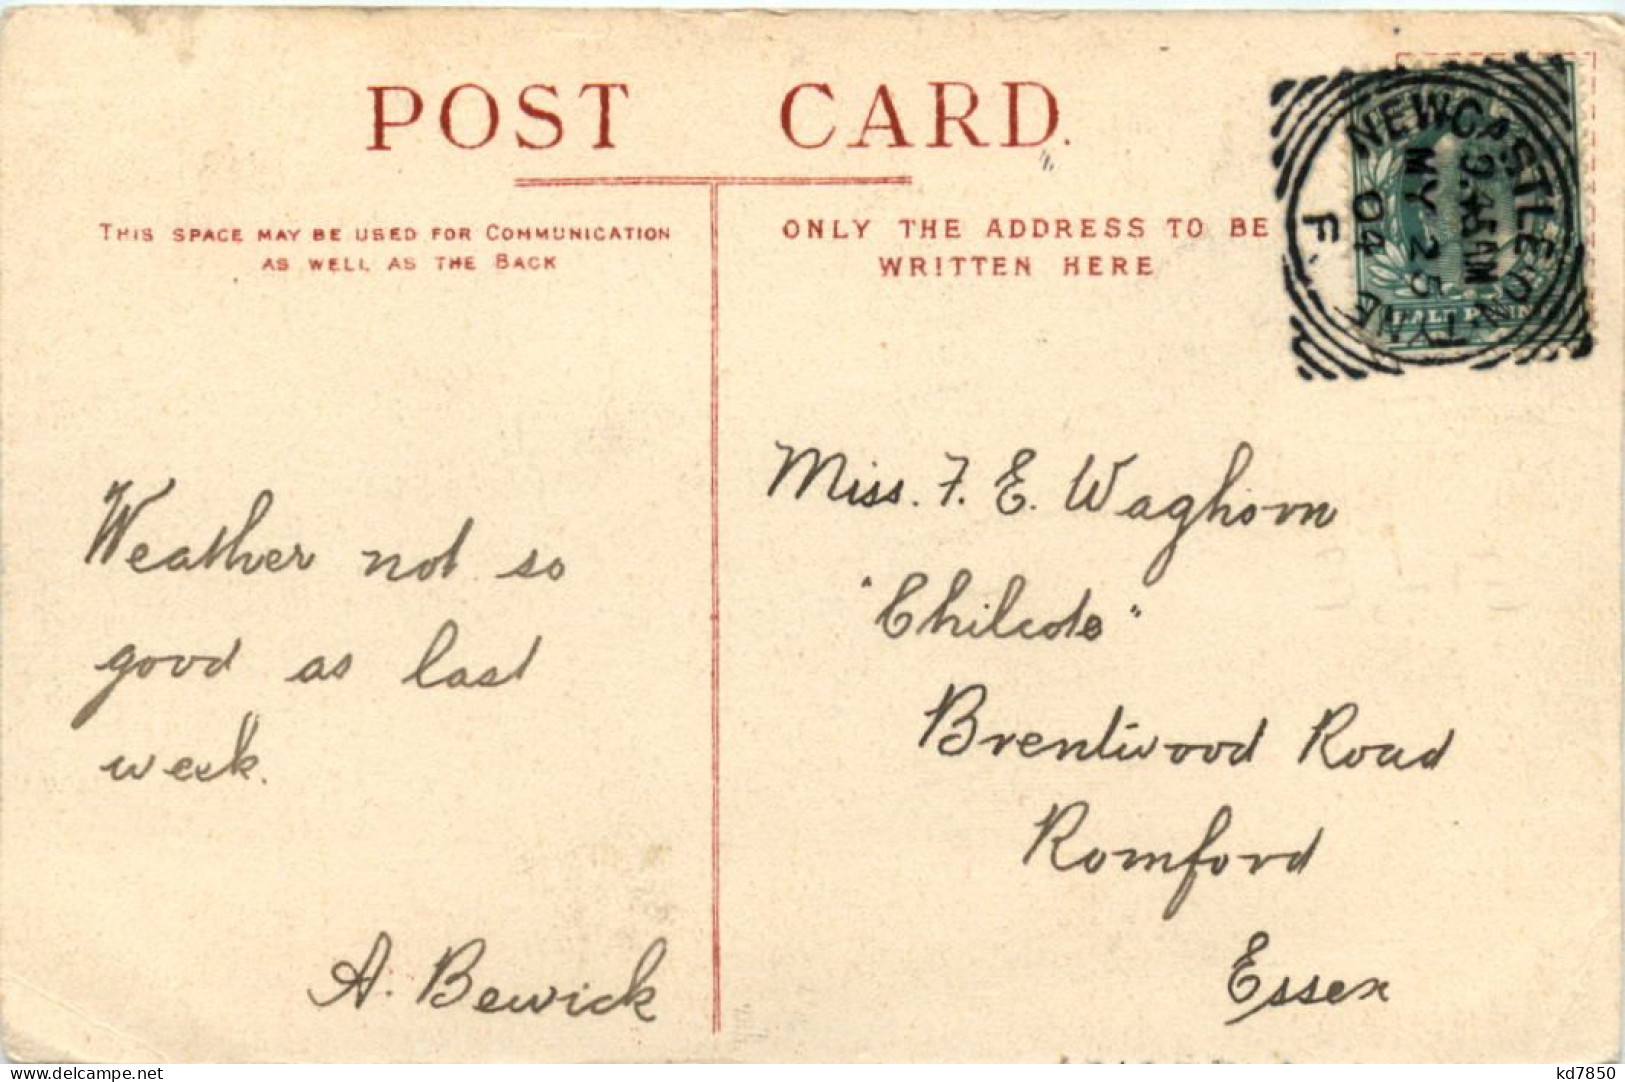 POST CARD.
THIS SPACE MAY BE USED FOR COMMUNICATION
AS WELL AS THE BACK
ONLY THE ADDRESS TO BE
WRITTEN HERE
NEWCASTLE-ON-TYNE
9.45AM
MY 25
04
F.
HALF PENNY
Weather not so
good as last
week.
A. Bewick
Miss. F. E. Waghorn
"Chilcote"
Brentwood Road
Romford
Essex
kd7850
delcampe.net